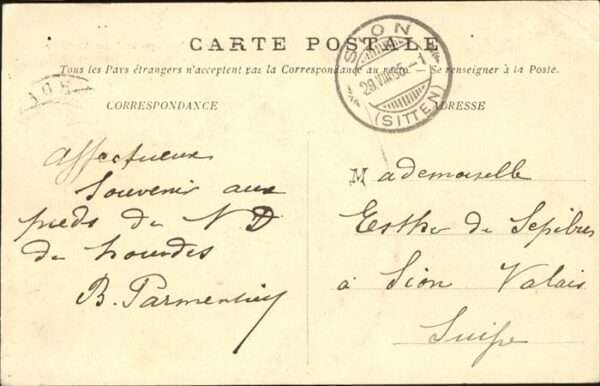 CARTE POSTALE
Tous les Pays étrangers n'acceptent pas la Correspondance au recto. — Se renseigner à la Poste.
SION
29 VIII 05 - 1
(SITTEN)
CORRESPONDANCE
ADRESSE
affectueux
souvenir aux
pieds de N D
de Lourdes
B.
Mademoiselle
Esther de Sépibus
à Sion Valais
Suisse